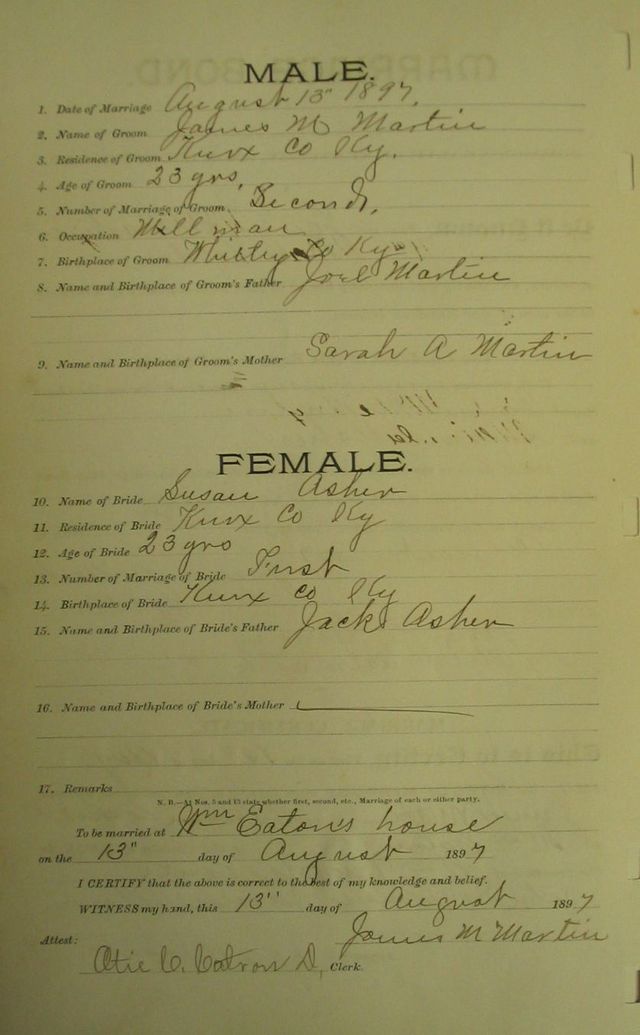 MALE.
1. Date of Marriage August 13" 1897.
2. Name of Groom James M Martin
3. Residence of Groom Knox Co Ky.
4. Age of Groom 23 yrs,
5. Number of Marriage of Groom, Second,
6. Occupation Mill man
7. Birthplace of Groom Whitley Co Ky
8. Name and Birthplace of Groom's Father Joel Martin
9. Name and Birthplace of Groom's Mother Sarah A Martin
FEMALE.
10. Name of Bride Susan Asher
11. Residence of Bride Knox Co Ky
12. Age of Bride 23 yrs
13. Number of Marriage of Bride First
14. Birthplace of Bride Knox Co Ky
15. Name and Birthplace of Bride's Father Jack Asher
16. Name and Birthplace of Bride's Mother
17. Remarks
N. B.—At Nos. 5 and 13 state whether first, second, etc., Marriage of each or either party.
To be married at Wm Eaton's house
on the 13" day of August 1897
I CERTIFY that the above is correct to the best of my knowledge and belief.
WITNESS my hand, this 13" day of August 1897
James M Martin
Attest:
Catron D, Clerk.